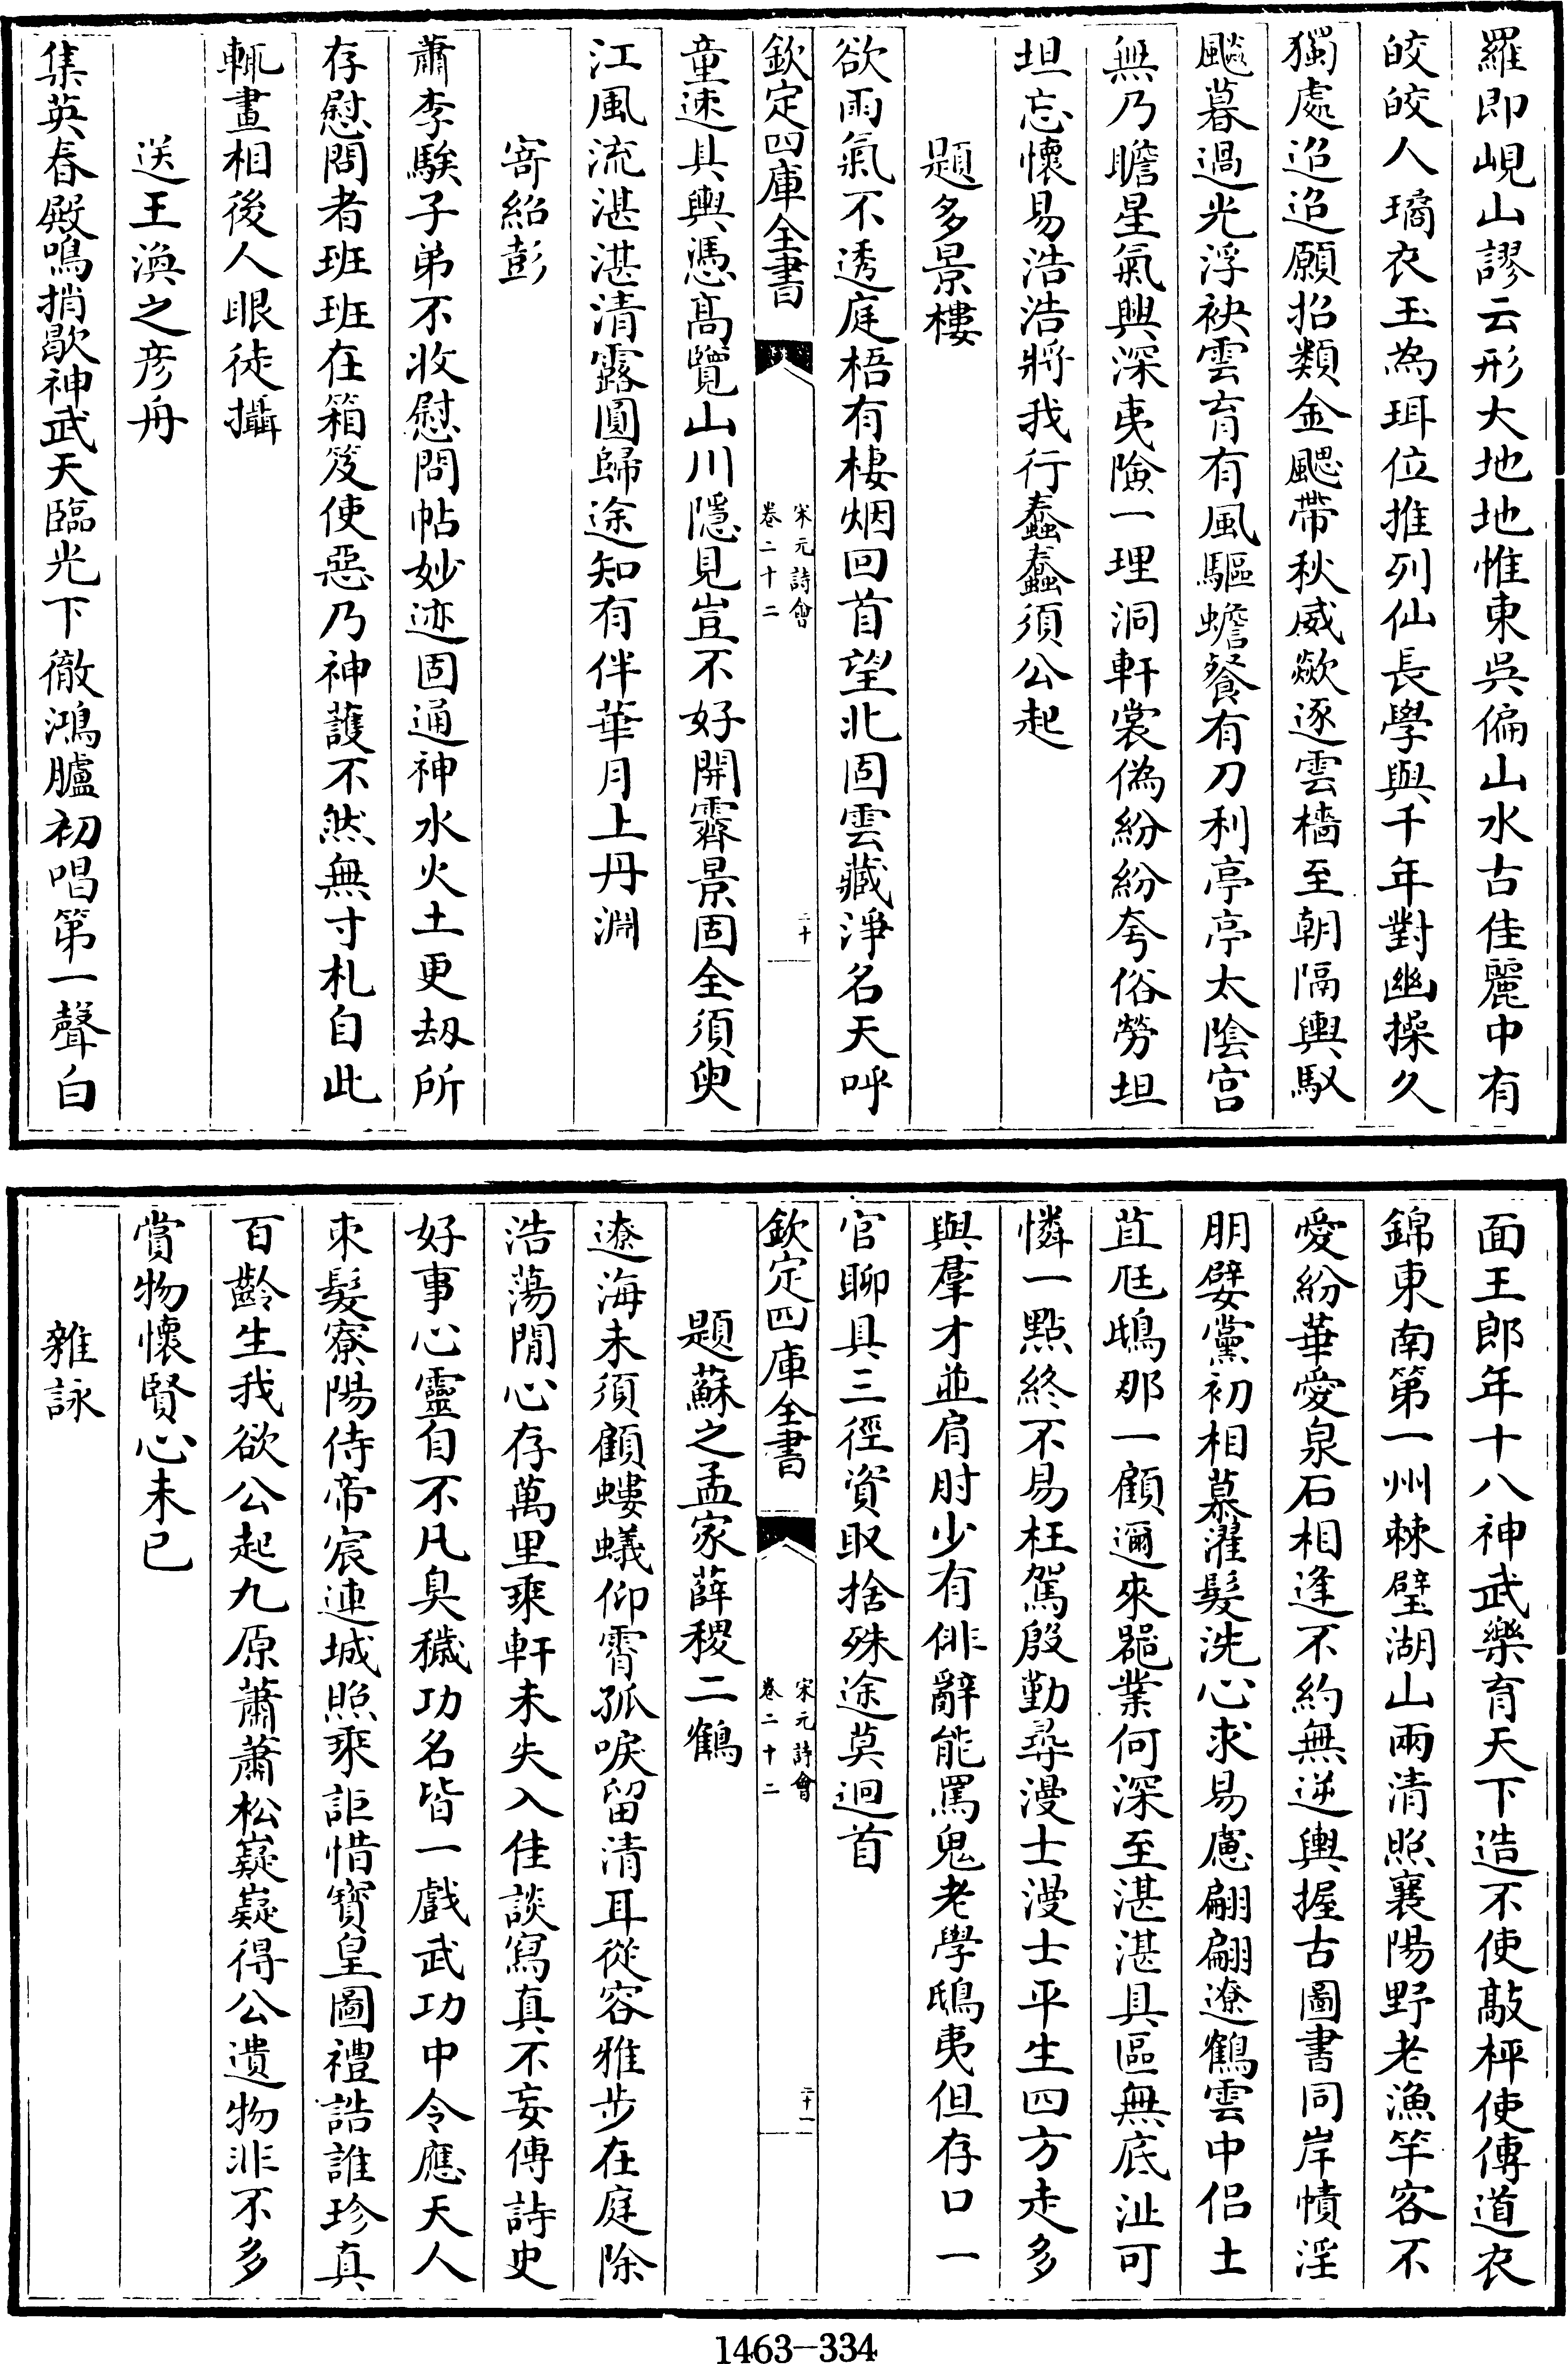 羅即峴山謬云形大地地惟東吳偏山水古佳麗中有
皎皎人璚衣玉為珥位推列仙長學與千年對幽操久
獨處迢迢願招類金颸帶秋威歘逐雲檣至朝隮輿馭
飈暮過光浮袂雲育有風驅蟾餐有刀利亭亭太陰宫
無乃瞻星氣興深夷險一理洞軒裳偽紛紛夸俗勞坦
坦忘懷易浩浩將我行蠢蠢須公起
題多景樓
欲雨氣不透庭梧有棲烟回首望北固雲藏淨名天呼
欽定四庫全書
宋元詩會
卷二十二
二十
童速具輿憑高覽山川隱見豈不好開霽景固全須臾
江風流湛湛清露圓歸途知有伴華月上丹淵
寄紹彭
蕭李騃子弟不收慰問帖妙迹固通神水火土更刼所
存慰問者班班在箱笈使惡乃神䕶不然無寸札自此
輒畫相後人眼徒攝
送王渙之彦舟
集英春殿鳴捎歇神武天臨光下徹鴻臚初唱第一聲白
面王郎年十八神武樂育天下造不使敲枰使傳道衣
錦東南第一州棘璧湖山兩清照襄陽野老漁竿客不
愛紛華愛泉石相逢不約無逆輿握古圖書同岸幘淫
朋嬖黨初相慕濯髮洗心求易慮翩翩遼鶴雲中侣土
苴尫鴟那一顧邇來器業何深至湛湛具區無底沚可
憐一點終不易枉駕殷勤尋漫士漫士平生四方走多
與羣才並肩肘少有俳辭能罵鬼老學鴟夷但存口一
官聊具三徑資取捨殊途莫迴首
欽定四庫全書
宋元詩會
卷二十二
二十一
題蘇之孟家薛稷二鶴
遼海未須顧螻蟻仰霄孤唳留清耳從容雅步在庭除
浩蕩閒心存萬里乘軒未失入佳談寫真不妄傳詩史
好事心靈自不凡臭穢功名皆一戲武功中令應天人
束髮寮陽侍帝宸連城照乘詎惜寳皇圖禮誥誰珍真
百齡生我欲公起九原蕭蕭松嶷嶷得公遺物非不多
賞物懷賢心未已
雜詠
1463-334